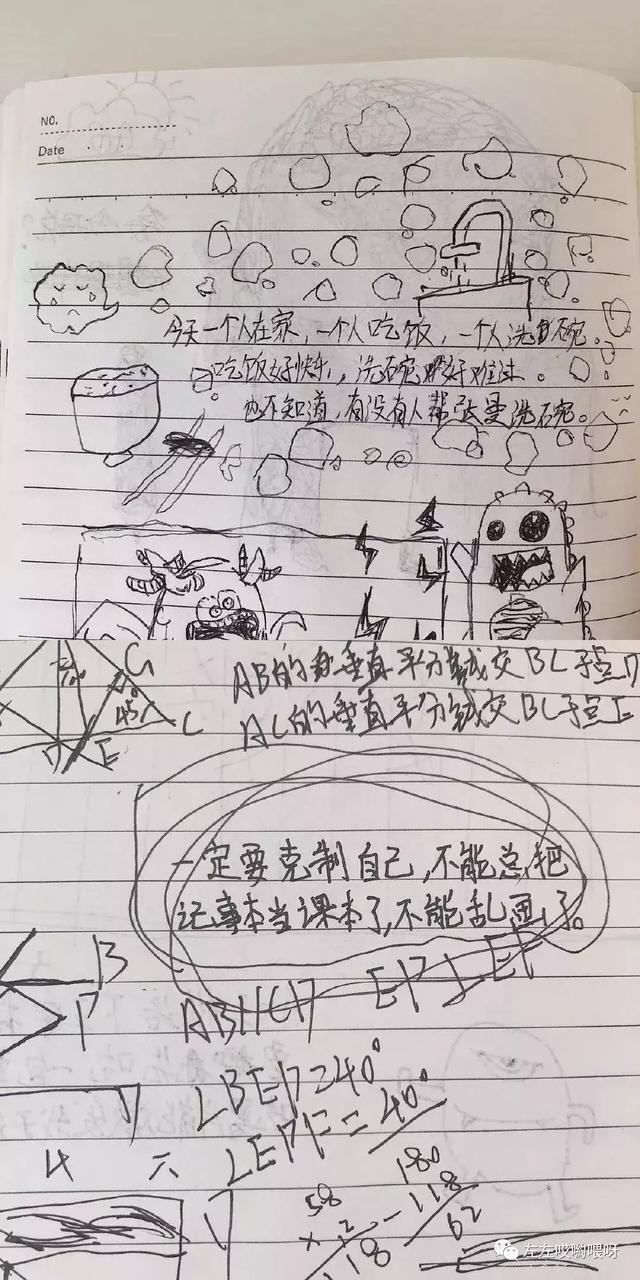 NO.
Date
今天一个人在家,一个人吃饭,一个人洗碗。
吃饭好快乐,洗碗好难过。
也不知道,有没有人帮曼洗碗。
G
AB的垂直平分线交BC于点D
45°
C
AC的垂直平分线交BC于点E
D E
一定要克制自己,不能总把
记事本当课本了,不能乱画了。
B
P
AB∥CD EP⊥EF
∠BEP=40°
∠EPF=40°
4 六
58 180
×2 -118
118 62
左左哎哟喂呀